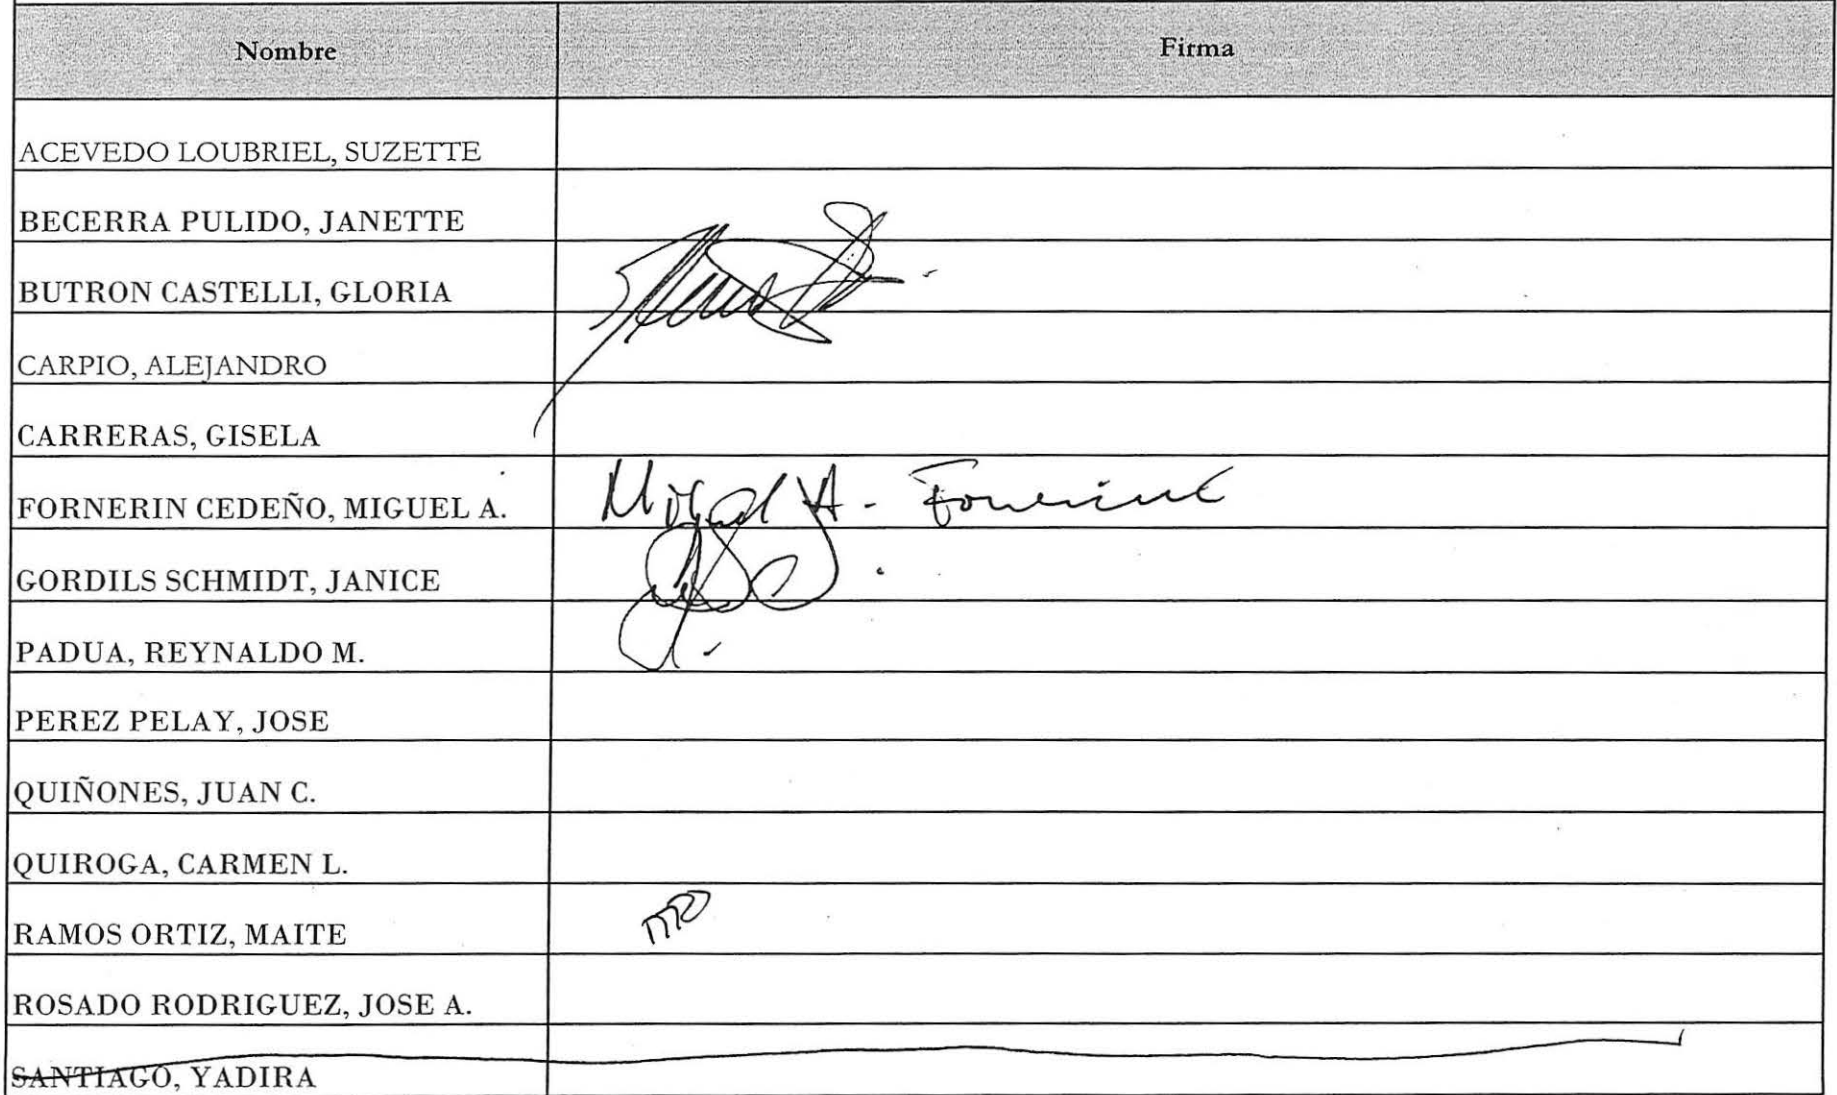 Nombre Firma
ACEVEDO LOUBRIEL, SUZETTE
BECERRA PULIDO, JANETTE
BUTRON CASTELLI, GLORIA
CARPIO, ALEJANDRO
CARRERAS, GISELA
FORNERIN CEDEÑO, MIGUEL A. Miguel A. Fornerin
GORDILS SCHMIDT, JANICE
PADUA, REYNALDO M.
PEREZ PELAY, JOSE
QUIÑONES, JUAN C.
QUIROGA, CARMEN L.
RAMOS ORTIZ, MAITE
ROSADO RODRIGUEZ, JOSE A.
SANTIAGO, YADIRA